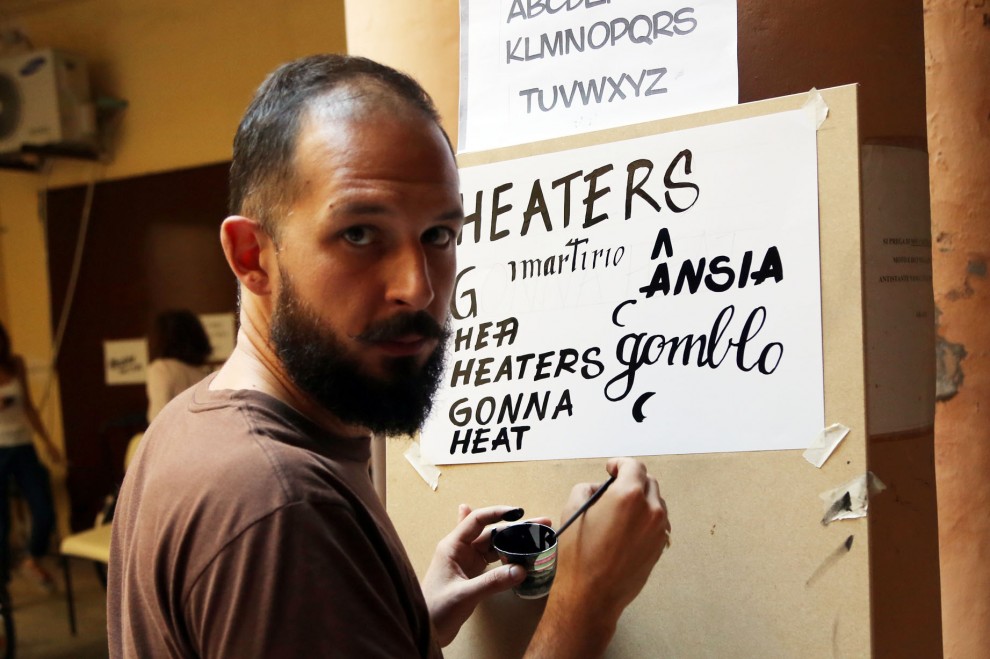 KLMNOPQRS
TUVWXYZ
HEATERS
martirio
A
ANSIA
G
HEA
HEATERS
gomblo
GONNA
HEAT
SAMSUNG